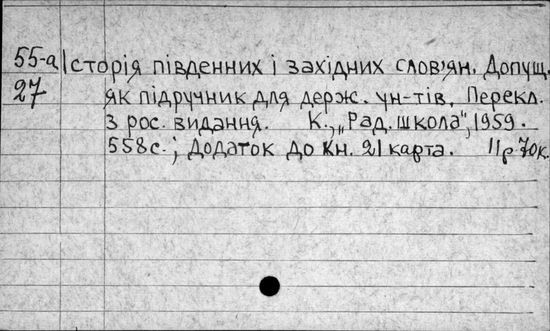 55-а Історія південних і західних слов'ян. Допущ.
27 як підручник для держ. ун-тів. Перекл.
з рос. видання. К., „Рад. школа", 1959.
558с.; Додаток до кн. 21 карта. 11р 70к.